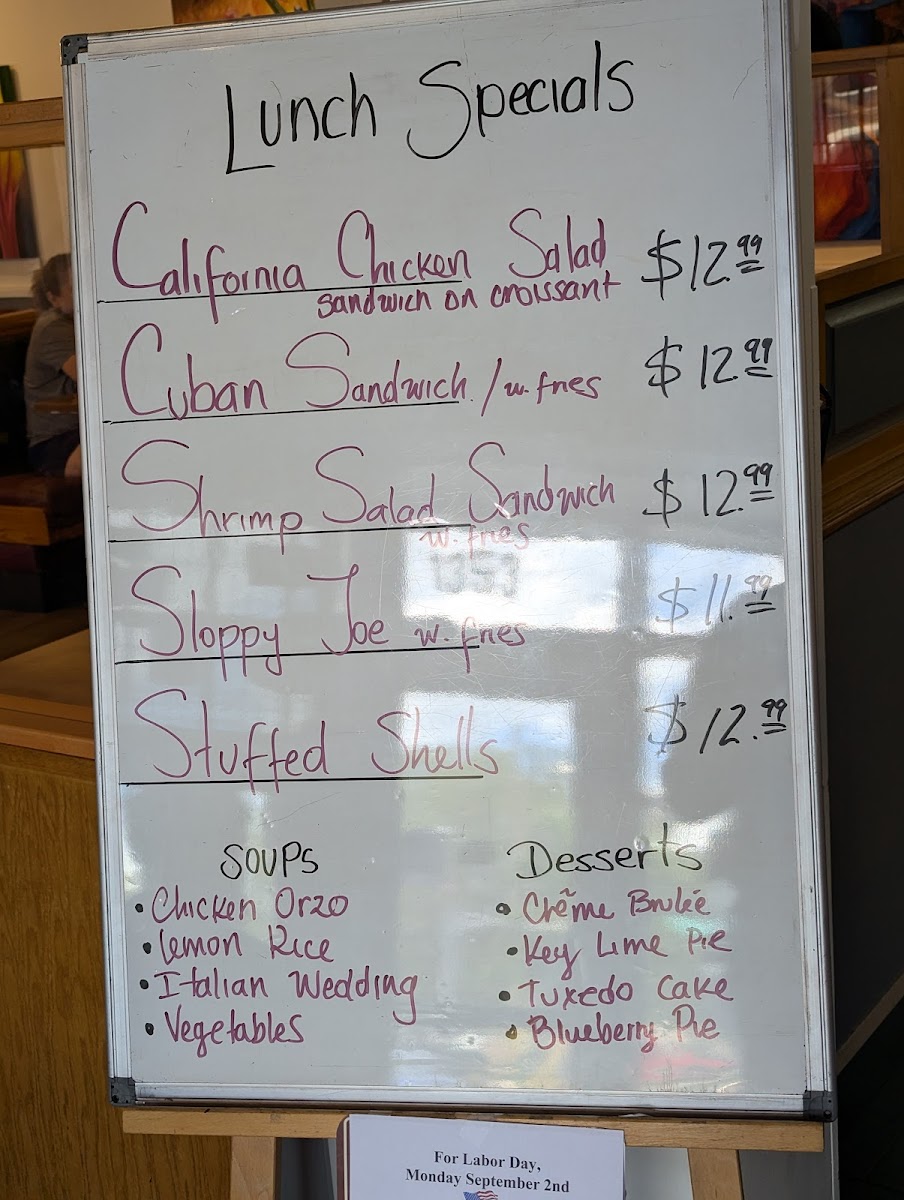 Lunch Specials
California Chicken Salad $12.99
sandwich on croissant
Cuban Sandwich /w. fries $12.99
Shrimp Salad Sandwich $12.99
w. fries
1353
Sloppy Joe w. fries $11.99
Stuffed Shells $12.99
Soups
• Chicken Orzo
• Lemon Rice
• Italian Wedding
• Vegetables
Desserts
• Crẽme Brulée
• Key Lime Pie
• Tuxedo Cake
• Blueberry Pie
For Labor Day,
Monday September 2nd